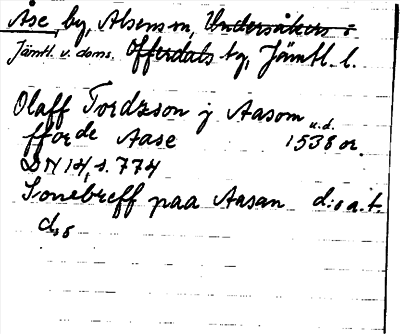 Åse, by, Alsens sn, Undersåkers o
Jämtl. v. doms. Offerdals tg, Jämtl. l.
Olaff Tordzson j Aasom
u.d.
fforde Aase 1538 or.
DN 14, s. 774
Sonebreff paa Aasan d:o a.t.
d:o